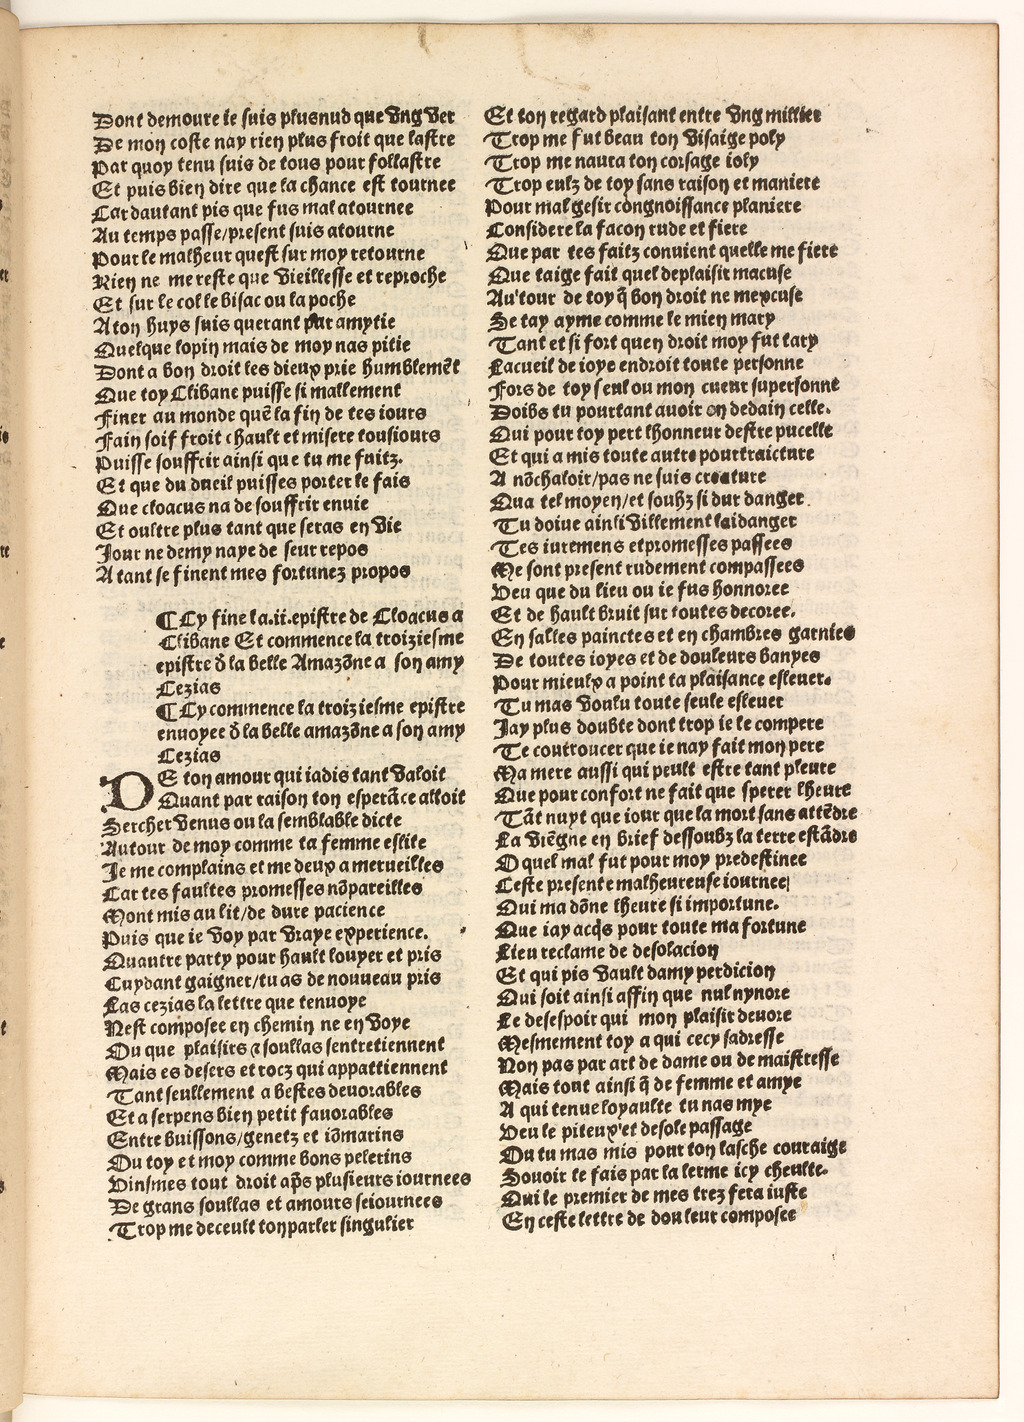 Dont demoure ie suis plusnud que vng ver
De mon coste nay rien plus froit que lastre
Par quoy tenu suis de tous pour follastre
Et puis bien dire que la chance est tournee
Car dautant pis que fus mal atournee
Au temps passe/present suis atourne
Pour le malheur quest sur moy retourne
Rien ne me reste que vieillesse et reproche
Et sur le col le bisac ou la poche
A ton huys suis querant par amytie
Quelque lopin mais de moy nas pitie
Dont a bon droit les dieux prie humblemēt
Que toy Clibane puisse si mallement
Finer au monde quē la fin de tes iours
Fain soif froit chault et misere tousiours
Puisse souffrir ainsi que tu me faitz.
Et que du dueil puisses porter le fais
Que cloacus na de souffrir enuie
Et oultre plus tant que seras en vie
Iour ne demy naye de seur repos
A tant se finent mes fortunez propos
¶Cy fine la .ii. epistre de Cloacus a
Clibane Et commence la troiziesme
epistre d̄ la belle Amazōne a son amy
Cezias
¶Cy commence la troiziesme epistre
enuoyee d̄ la belle amazōne a son amy
Cezias
DE ton amour qui iadis tant valoit
Quant par raison ton esperāce alloit
Sercher venus ou la semblable dicte
Autour de moy comme ta femme eslite
Ie me complains et me deux a merueilles
Car tes faultes promesses nōpareilles
Mont mis au lit/de dure pacience
Puis que ie voy par vraye experience.
Quautre party pour hault louyer et pris
Cuydant gaigner/tu as de nouueau pris
Las cezias la lettre que tenuoye
Nest composee en chemin ne en voye
Ou que plaisirs ⁊ soullas sentretiennent
Mais es desers et rocz qui appartiennent
Tant seullement a bestes deuorables
Et a serpens bien petit fauorables
Entre buissons/genetz et iōmarins
Ou toy et moy comme bons pelerins
Vinsmes tout droit ap̄s plusieurs iournees
De grans soullas et amours seiournees
Trop me deceult ton parler singulier
Et ton regard plaisant entre vng millier
Trop me fut beau ton visaige poly
Trop me naura ton corsage ioly
Trop eulz de toy sans raison et maniere
Pour mal gesir congnoissance planiere
Considere la facon rude et fiere
Que par tes faitz conuient quelle me fiere
Que taige fait quel deplaisir macuse
Au'tour de toy q̄ bon droit ne mexcuse
Se tay ayme comme le mien mary
Tant et si fort quen droit moy fut tary
Lacueil de ioye endroit toute personne
Fors de toy seul ou mon cueur supersonne
Doibs tu pourtant auoir en dedain celle.
Qui pour toy pert lhonneur destre pucelle
Et qui a mis toute autre pourtraicture
A nōchaloir/pas ne suis creature
Qua tel moyen/et soubz si dur danger
Tu doiue ainsi villement laidanger
Tes iuremens et promesses passees
Me sont present rudement compassees
Veu que du lieu ou ie fus honnoree
Et de hault bruit sur toutes decoree.
En salles painctes et en chambres garnies
De toutes ioyes et de douleurs banyes
Pour mieulx a point ta plaisance esleuer.
Tu mas voulu toute seule esleuer
Iay plus doubte dont trop ie le compere
Te courroucer que ie nay fait mon pere
Ma mere aussi qui peult estre tant pleure
Que pour confort ne fait que sperer lheure
Tāt nuyt que iour que la mort sans attēdre
La viēgne en brief dessoubz la terre estādre
O quel mal fut pour moy predestinee
Ceste presente malheureuse iournee
Qui ma dōne lheure si importune.
Que iay acq̄s pour toute ma fortune
Lieu reclame de desolacion
Et qui pis vault damy perdicion
Qui soit ainsi affin que nul nynore
Le desespoir qui mon plaisir deuore
Mesmement toy a qui cecy sadresse
Non pas par art de dame ou de maistresse
Mais tout ainsi q̄ de femme et amye
A qui tenue loyaulte tu nas mye
Veu le piteux et desole passage
Ou tu mas mis pour ton lasche couraige
Souoir te fais par la lerme icy cheulte.
Qui le premier de mes trez fera iuste
En ceste lettre de douleur composee